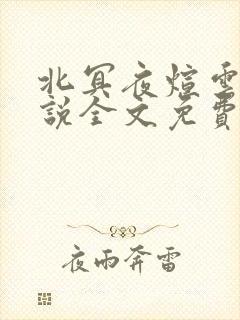 北冥夜煊雲
說全文免費
夜雨奔雷